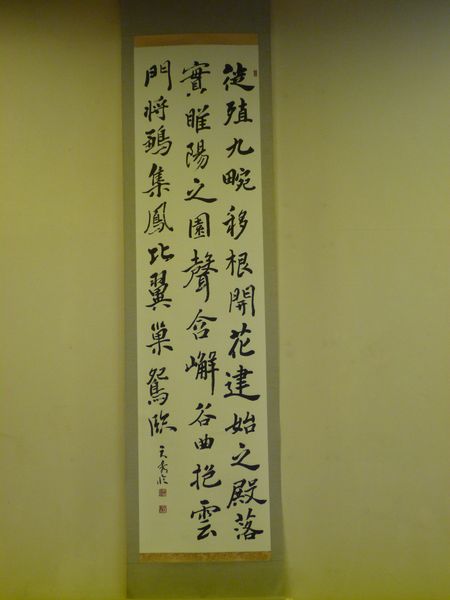 徙殖九畹移根開花建始之殿落
實睢陽之園聲含嶰谷曲抱雲
門將鵷集鳳比翼巢鴛臨